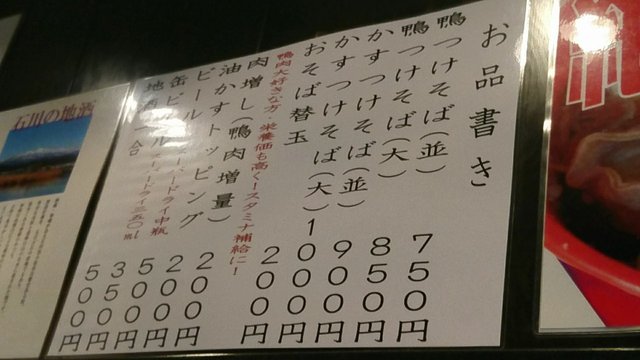 お品書き
鴨つけそば(並) 750円
鴨つけそば(大) 850円
かすつけそば(並) 900円
かすつけそば(大) 1000円
おそば替玉 200円
鴨肉大好きな方 栄養価も高く!スタミナ補給に!
肉増し(鴨肉増量) 200円
油かすトッピング 200円
ビール スーパードライ中瓶 500円
缶ビール スーパードライ三五〇ml 350円
地酒 一合 500円
石川の地酒